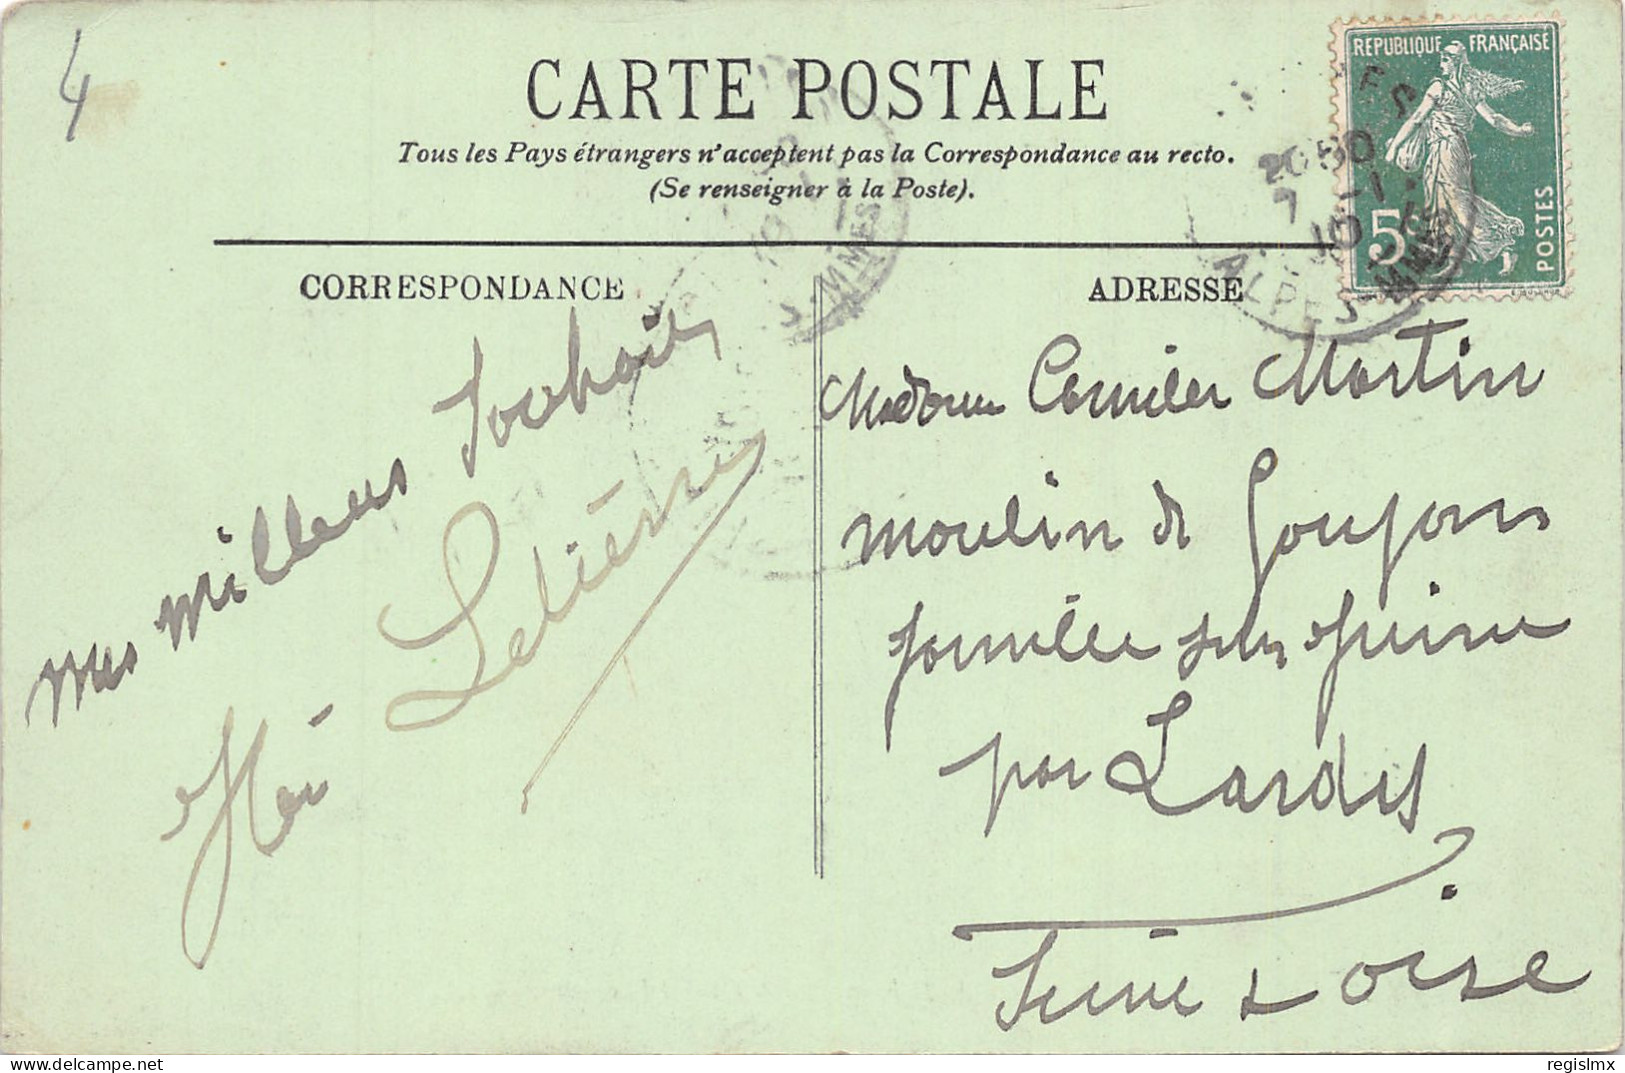 4
CARTE POSTALE
Tous les Pays étrangers n'acceptent pas la Correspondance au recto.
(Se renseigner à la Poste).
REPUBLIQUE FRANÇAISE
5c
POSTES
7 -1
10
ALPES-MMES
CORRESPONDANCE
ADRESSE
mes meilleurs souhaits
Madame Camille Martin
moulin de Goujon
par Lardy
Seine & Oise
Delcampe.net
regislmx